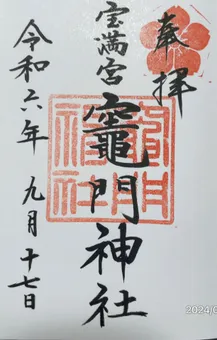 奉拝
宝満宮
竈門神社
令和六年 九月 十七日
竈門神社
2024/0